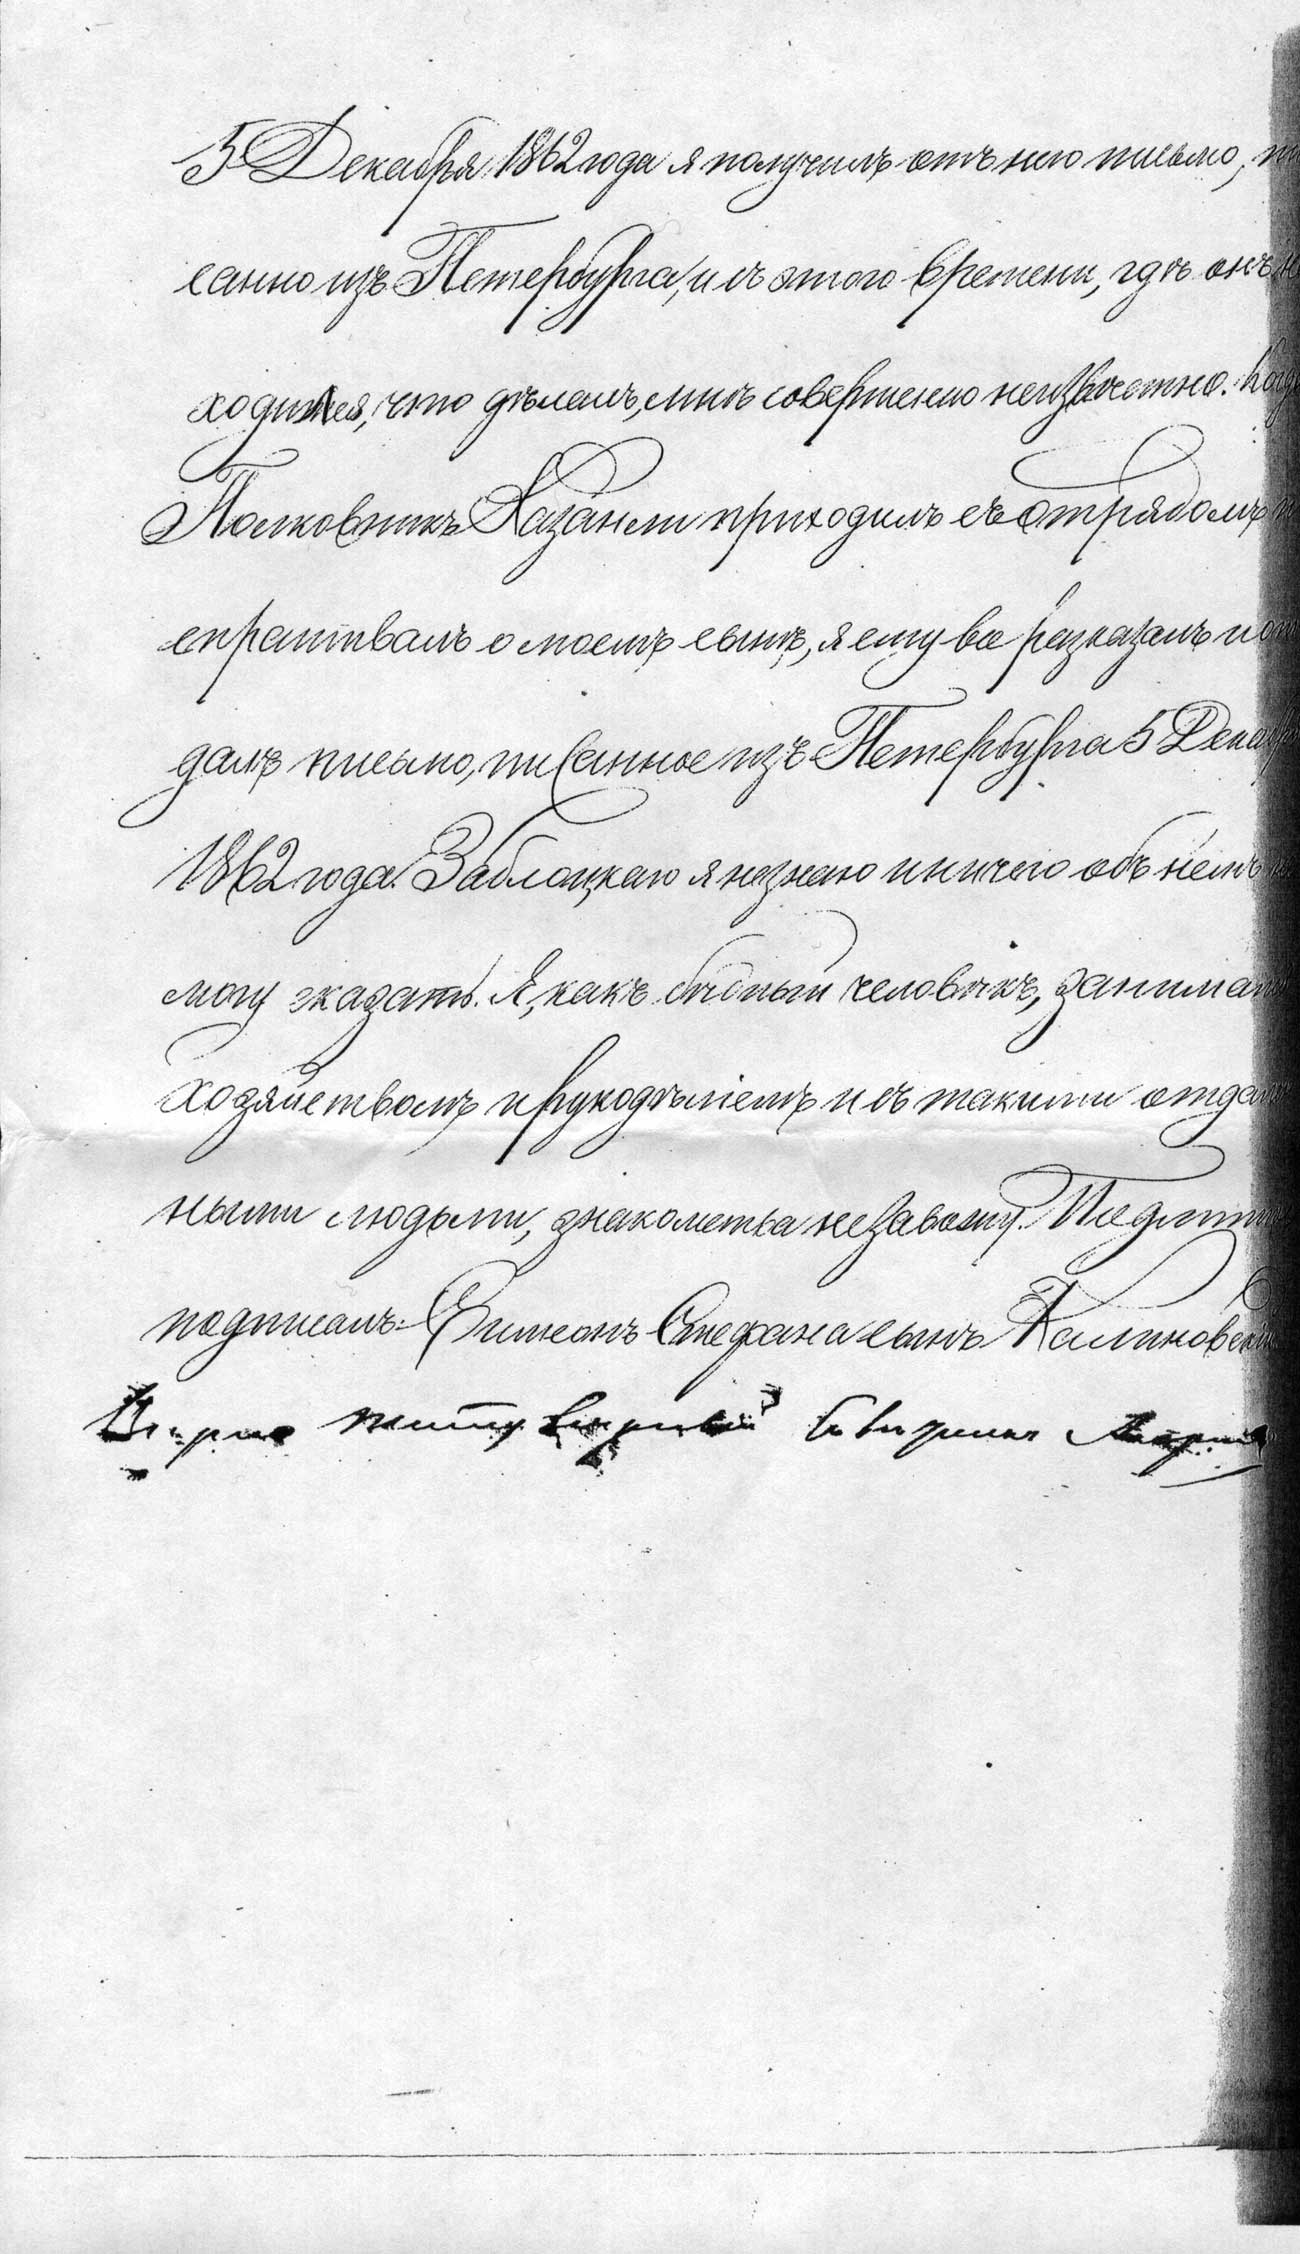 5 Декабря 1862 года я получилъ отъ него письмо, пи
санно изъ Петербурга, и съ этого времени, гдѣ онъ н
ходился, что дѣлалъ, мнѣ совершенно неизвѣстно. Когда
Полковникъ Казанли приходилъ съ отрядомъ и
спрашивалъ о моемъ сынѣ, я ему все разказалъ и от
далъ письмо, писанное изъ Петербурга 5 Декабр
1862 года. Заблоцкаго я незнаю и ничего объ немъ не
могу сказать. Я, какъ бѣдный человѣкъ, занимаюсь
хозяйствомъ и рукодѣліемъ и съ такими отдален
ными людьми, знакомства незавожу. Подлинное
подписалъ: Симеонъ Стефана сынъ Калиновскій
Вѣрно